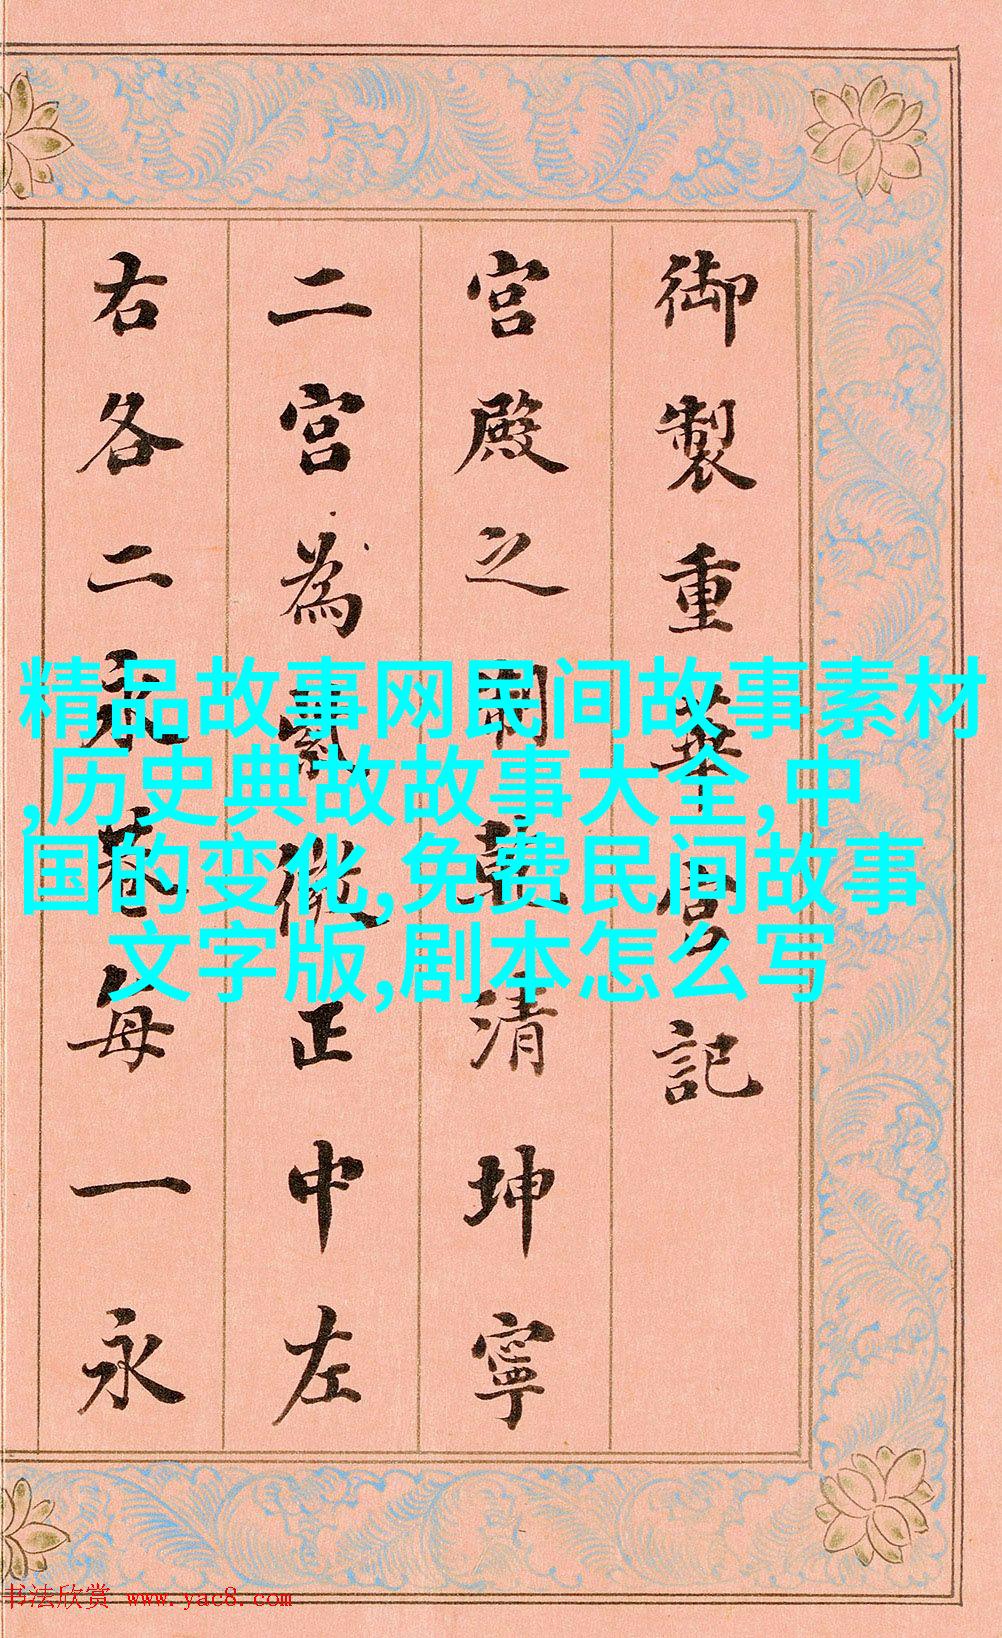 御製重華宮記
宮殿之制乾清坤寧
二宮為紫微正中左
右各二永巷每一永
精品故事网民间故事素材
,历史典故故事大全,中
国的变化,免费民间故事
文字版,剧本怎么写
书法欣赏 www.yac8.com